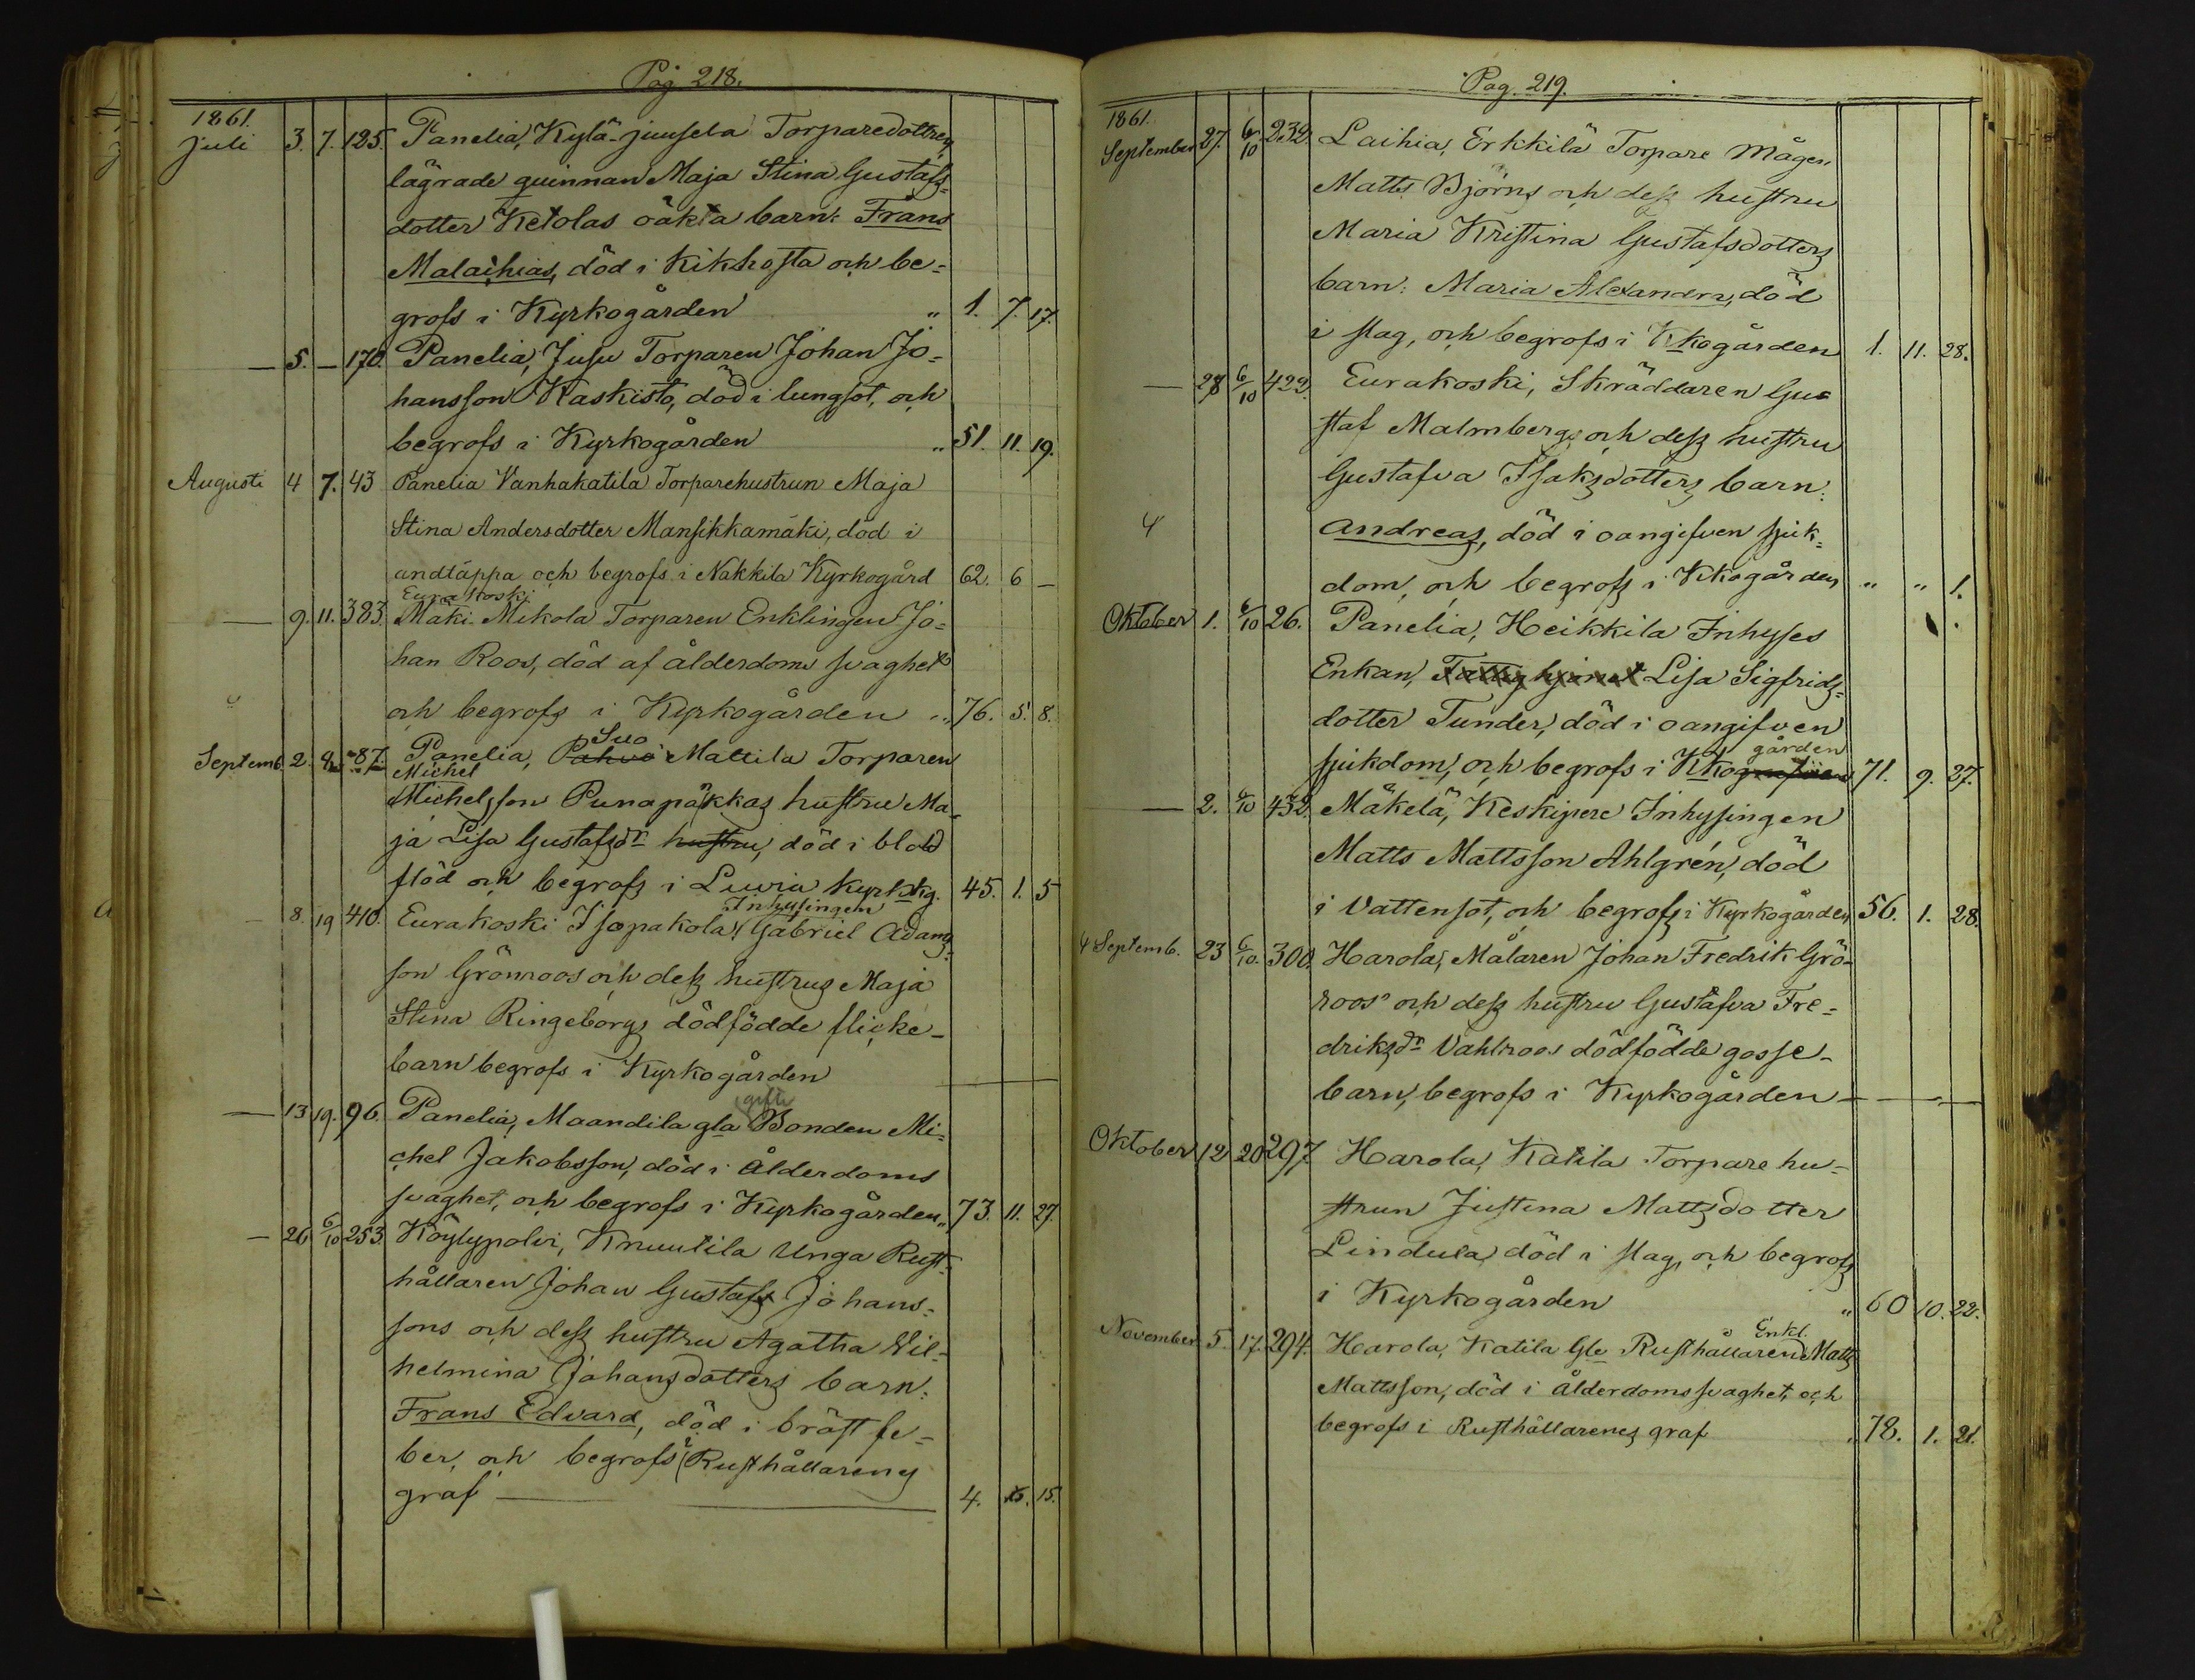 Pag 218.
1861.
Juli 3. 7. 125. Panelia, Kylä-juusela Torparedottren
lägrade quinnan Maja Stina Gustafs-
dotter Ketolas oäkta barn: Frans
Malachias, död i Kikhosta och be-
grofs i Kyrkogården " 1. 7. 17.
— 5. — 170. Panelia, Jusu Torparen Johan Jo-
hansson Kaskisto, död i lungsot, och
begrofs i Kyrkogården " 51. 11. 19.
Augusti 4 7. 43 Panelia Vanhakatila Torparehustrun Maja
Stina Andersdotter Mansikkamäki, död i
andtäppa och begrofs i Nakkila Kyrkogård 62. 6 —
Eurakoski
— 9. 11. 383. Mäki Mikola Torparen Enklingen Jo-
han Roos, död af ålderdoms svaghet
och begrofs i Kyrkogården " 76. 5. 8.
Suo
Septemb. 2. 87. Panelia, Pahvo Mattila Torparen
Michel
Michelsson Punapäkkas hustru Ma-
ja Lisa Gustafsdr hustru, död i blod
flöd och begrofs i Luvia Kyrkog. 45. 1. 5
Inhysingen
— 8. 19 410. Eurakoski Isopakola, Gabriel Adams-
son Grönroos och dess hustrus Maja
Stina Ringeborgs dödfödde flicke-
barn begrofs i Kyrkogården —
gifte
— 13 19. 96. Panelia, Maandila gla Bonden Mi-
chel Jakobsson, död i Ålderdoms
svaghet, och begrofs i Kyrkogården " 73. 11. 27.
— 26 6/10 253. Köylypolvi, Knuutila Unga Rust-
hållaren Johan Gustafs Johans-
sons och dess hustru Agatha Wil-
helmina Johansdotters barn:
Frans Edvard, död i bröst fe-
ber, och begrofs i Rusthållarens
graf — 4. 15.
Pag. 219.
1861.
September 27. 6/10 232. Laihia, Erkkilä Torpare Mågen
Matts Björns och dess hustru
Maria Kristina Gustafsdotters
barn: Maria Alexandra, död
i slag, och begrofs i Kkogården 1. 11. 28.
— 28 6/10 422. Eurakoski, Skräddaren Gu-
staf Malmbergs och dess hustru
Gustafva Isaksdotters barn:
Andreas, död i oangifven sjuk-
dom, och begrofs i Kkogården " " 1.
Oktober 1. 6/10 26. Panelia, Heikkila Inhyses
Enkan, Fattighjonet Lisa Sigfrids-
dotter Tunder, död i oangifven
gården
sjukdom, och begrofs i Kko 71. 9. 27.
— 2. 6/10 432. Mäkelä, Keskipere Inhysingen
Matts Mattsson Ahlgrén, död
i Vattensot, och begrofs i Kyrkogården 56. 1. 28.
Septemb. 23 6/10. 300. Harola, Målaren Johan Fredrik Grö-
roos' och dess hustru Gustafva Fre-
driksdr Vahlroos dödfödde gosse-
barn, begrofs i Kyrkogården —
Oktober 12 20 297. Harola, Katila Torpare hu-
strun Justina Mattsdotter
Lindula, död i slag, och begrofs
i Kyrkogården " 60 10. 22.
Enkl.
November 5. 17. 294. Harola, Katila Gle Rusthållaren Matts
Mattsson, död i Ålderdomssvaghet, och
begrofs i Rusthållarenes graf " 78. 1. 21.